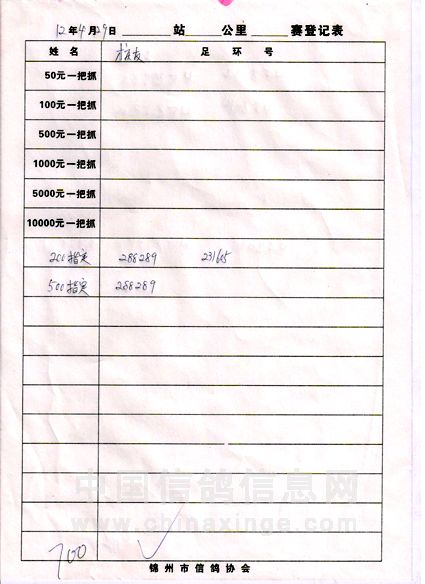 12年4月29日______站______公里______赛登记表
姓名 足环号
50元一把抓
100元一把抓
500元一把抓
1000元一把抓
5000元一把抓
10000元一把抓
200指定 288289 231605
500指定 288289
中国信鸽信息网
www.chinaxinge.com
700 ✓
锦州市信鸽协会